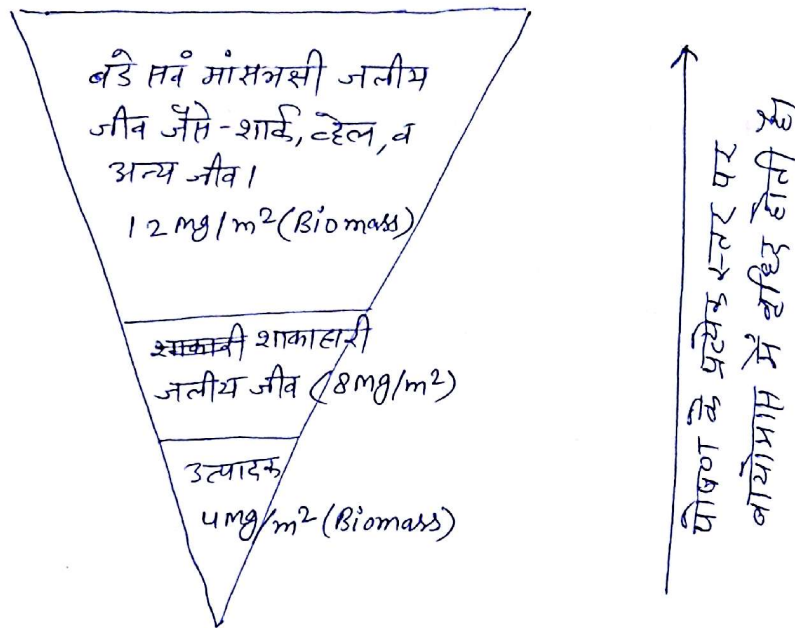 बडे एवं मांसभक्षी जलीय
जीव जैसे-शार्क, व्हेल, व
अन्य जीव।
12 mg/m² (Biomass)
शाकाहारी
जलीय जीव (8mg/m²)
उत्पादक
4mg/m² (Biomass)
पोषण के प्रत्येक स्तर पर
बायोमास में वृद्धि होती है।